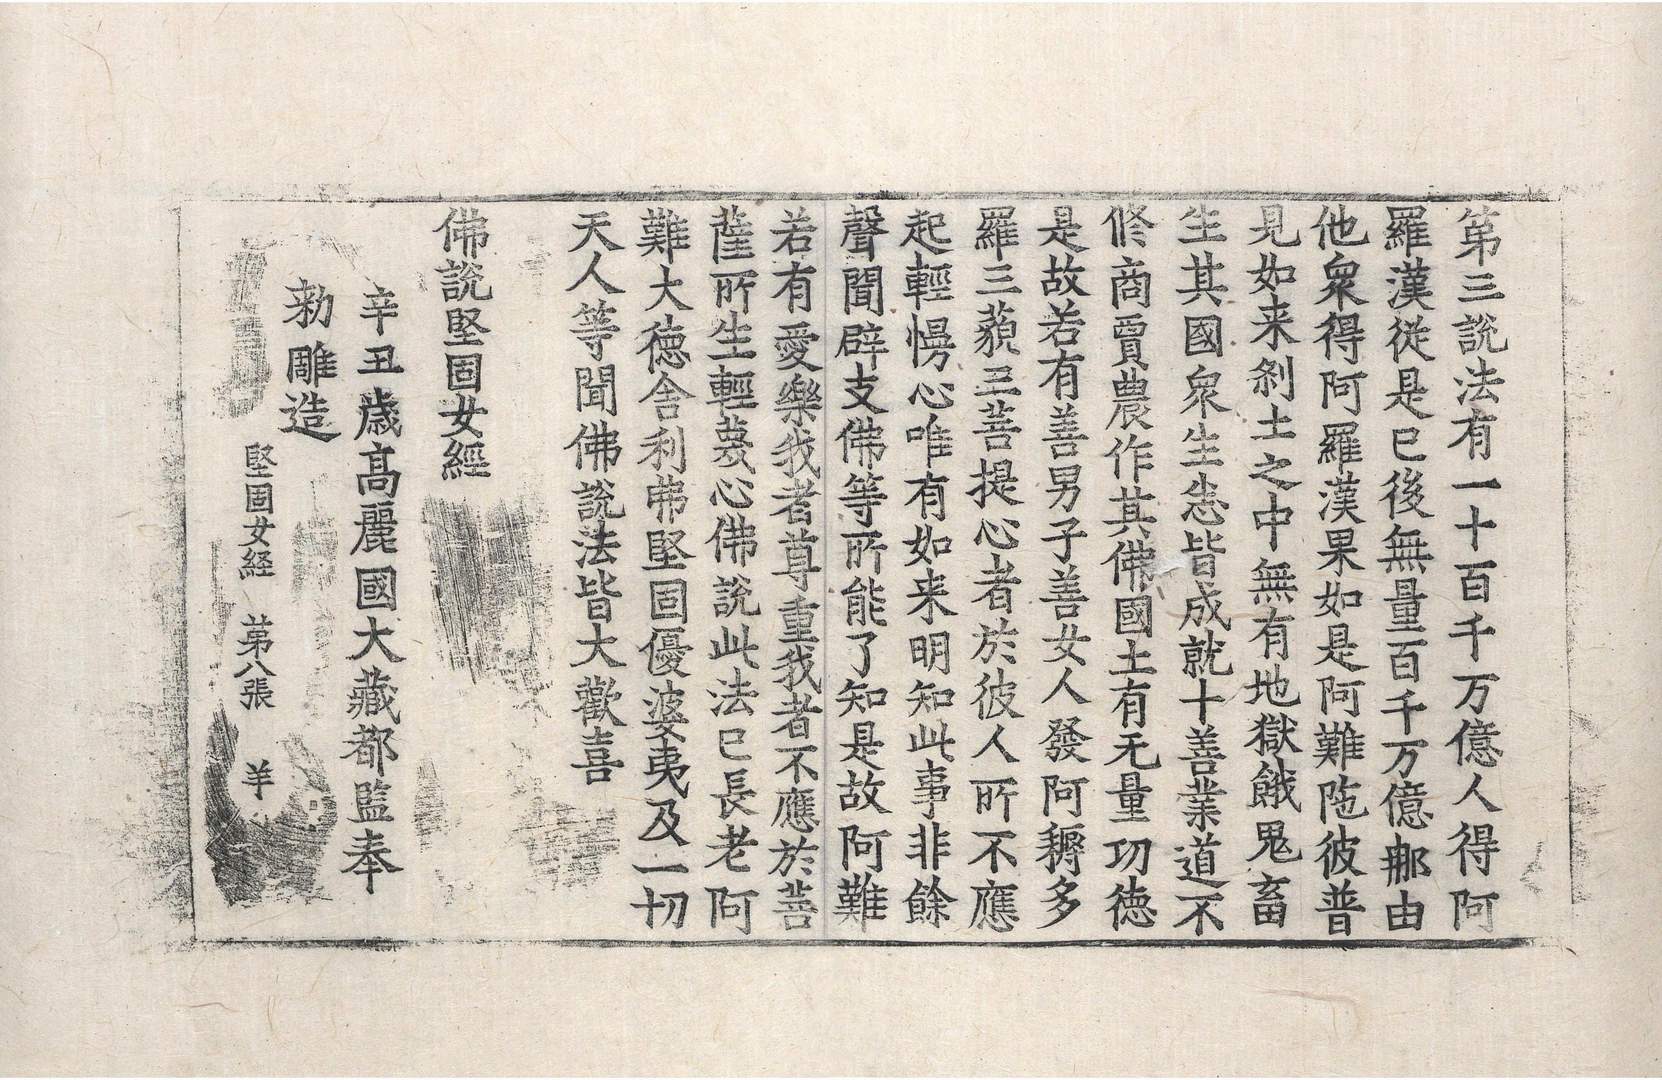 第三說法有一十百千万億人得阿
羅漢從是已後無量百千万億那由
他衆得阿羅漢果如是阿難陁彼普
見如来刹土之中無有地獄餓鬼畜
生其國衆生悉皆成就十善業道不
修商賈農作其佛國土有无量功德
是故若有善男子善女人發阿耨多
羅三藐三菩提心者於彼人所不應
起輕慢心唯有如来明知此事非餘
聲聞辟支佛等所能了知是故阿難
若有愛樂我者尊重我者不應於菩
薩所生輕蔑心佛說此法已長老阿
難大德舍利弗堅固優婆夷及一切
天人等聞佛說法皆大歡喜
佛說堅固女經
辛丑歲高麗國大藏都監奉
勑雕造
堅固女経 第八張 羊